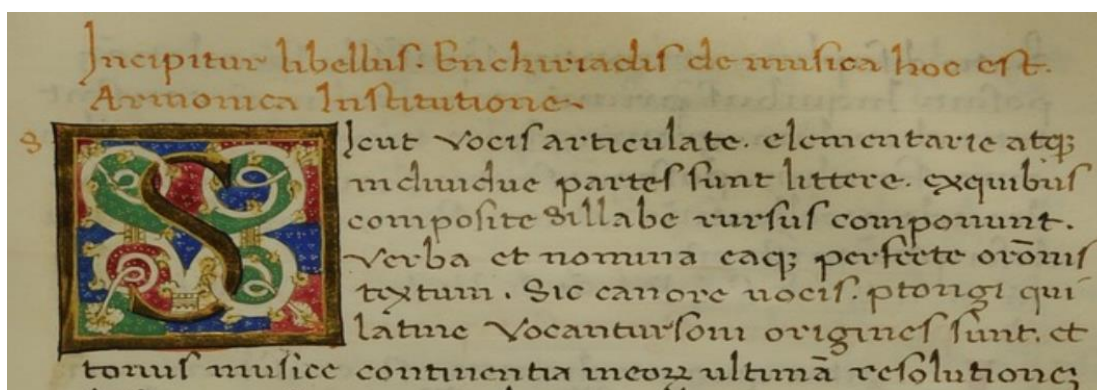 Incipitur libellus. Enchiriadis de musica hoc est.
Armonica Institutione
S Icut vocis articulate. elementarie atqꝫ
individue partes sunt littere. exquibus
composite Sillabe rursus componunt.
Verba et nomina eaqꝫ perfecte orōnis
textum. Sic canore vocis. ptongi qui
latine Vocantur soni origines sunt. et
torius musice continentia ineoꝝ ultimā resolutione;